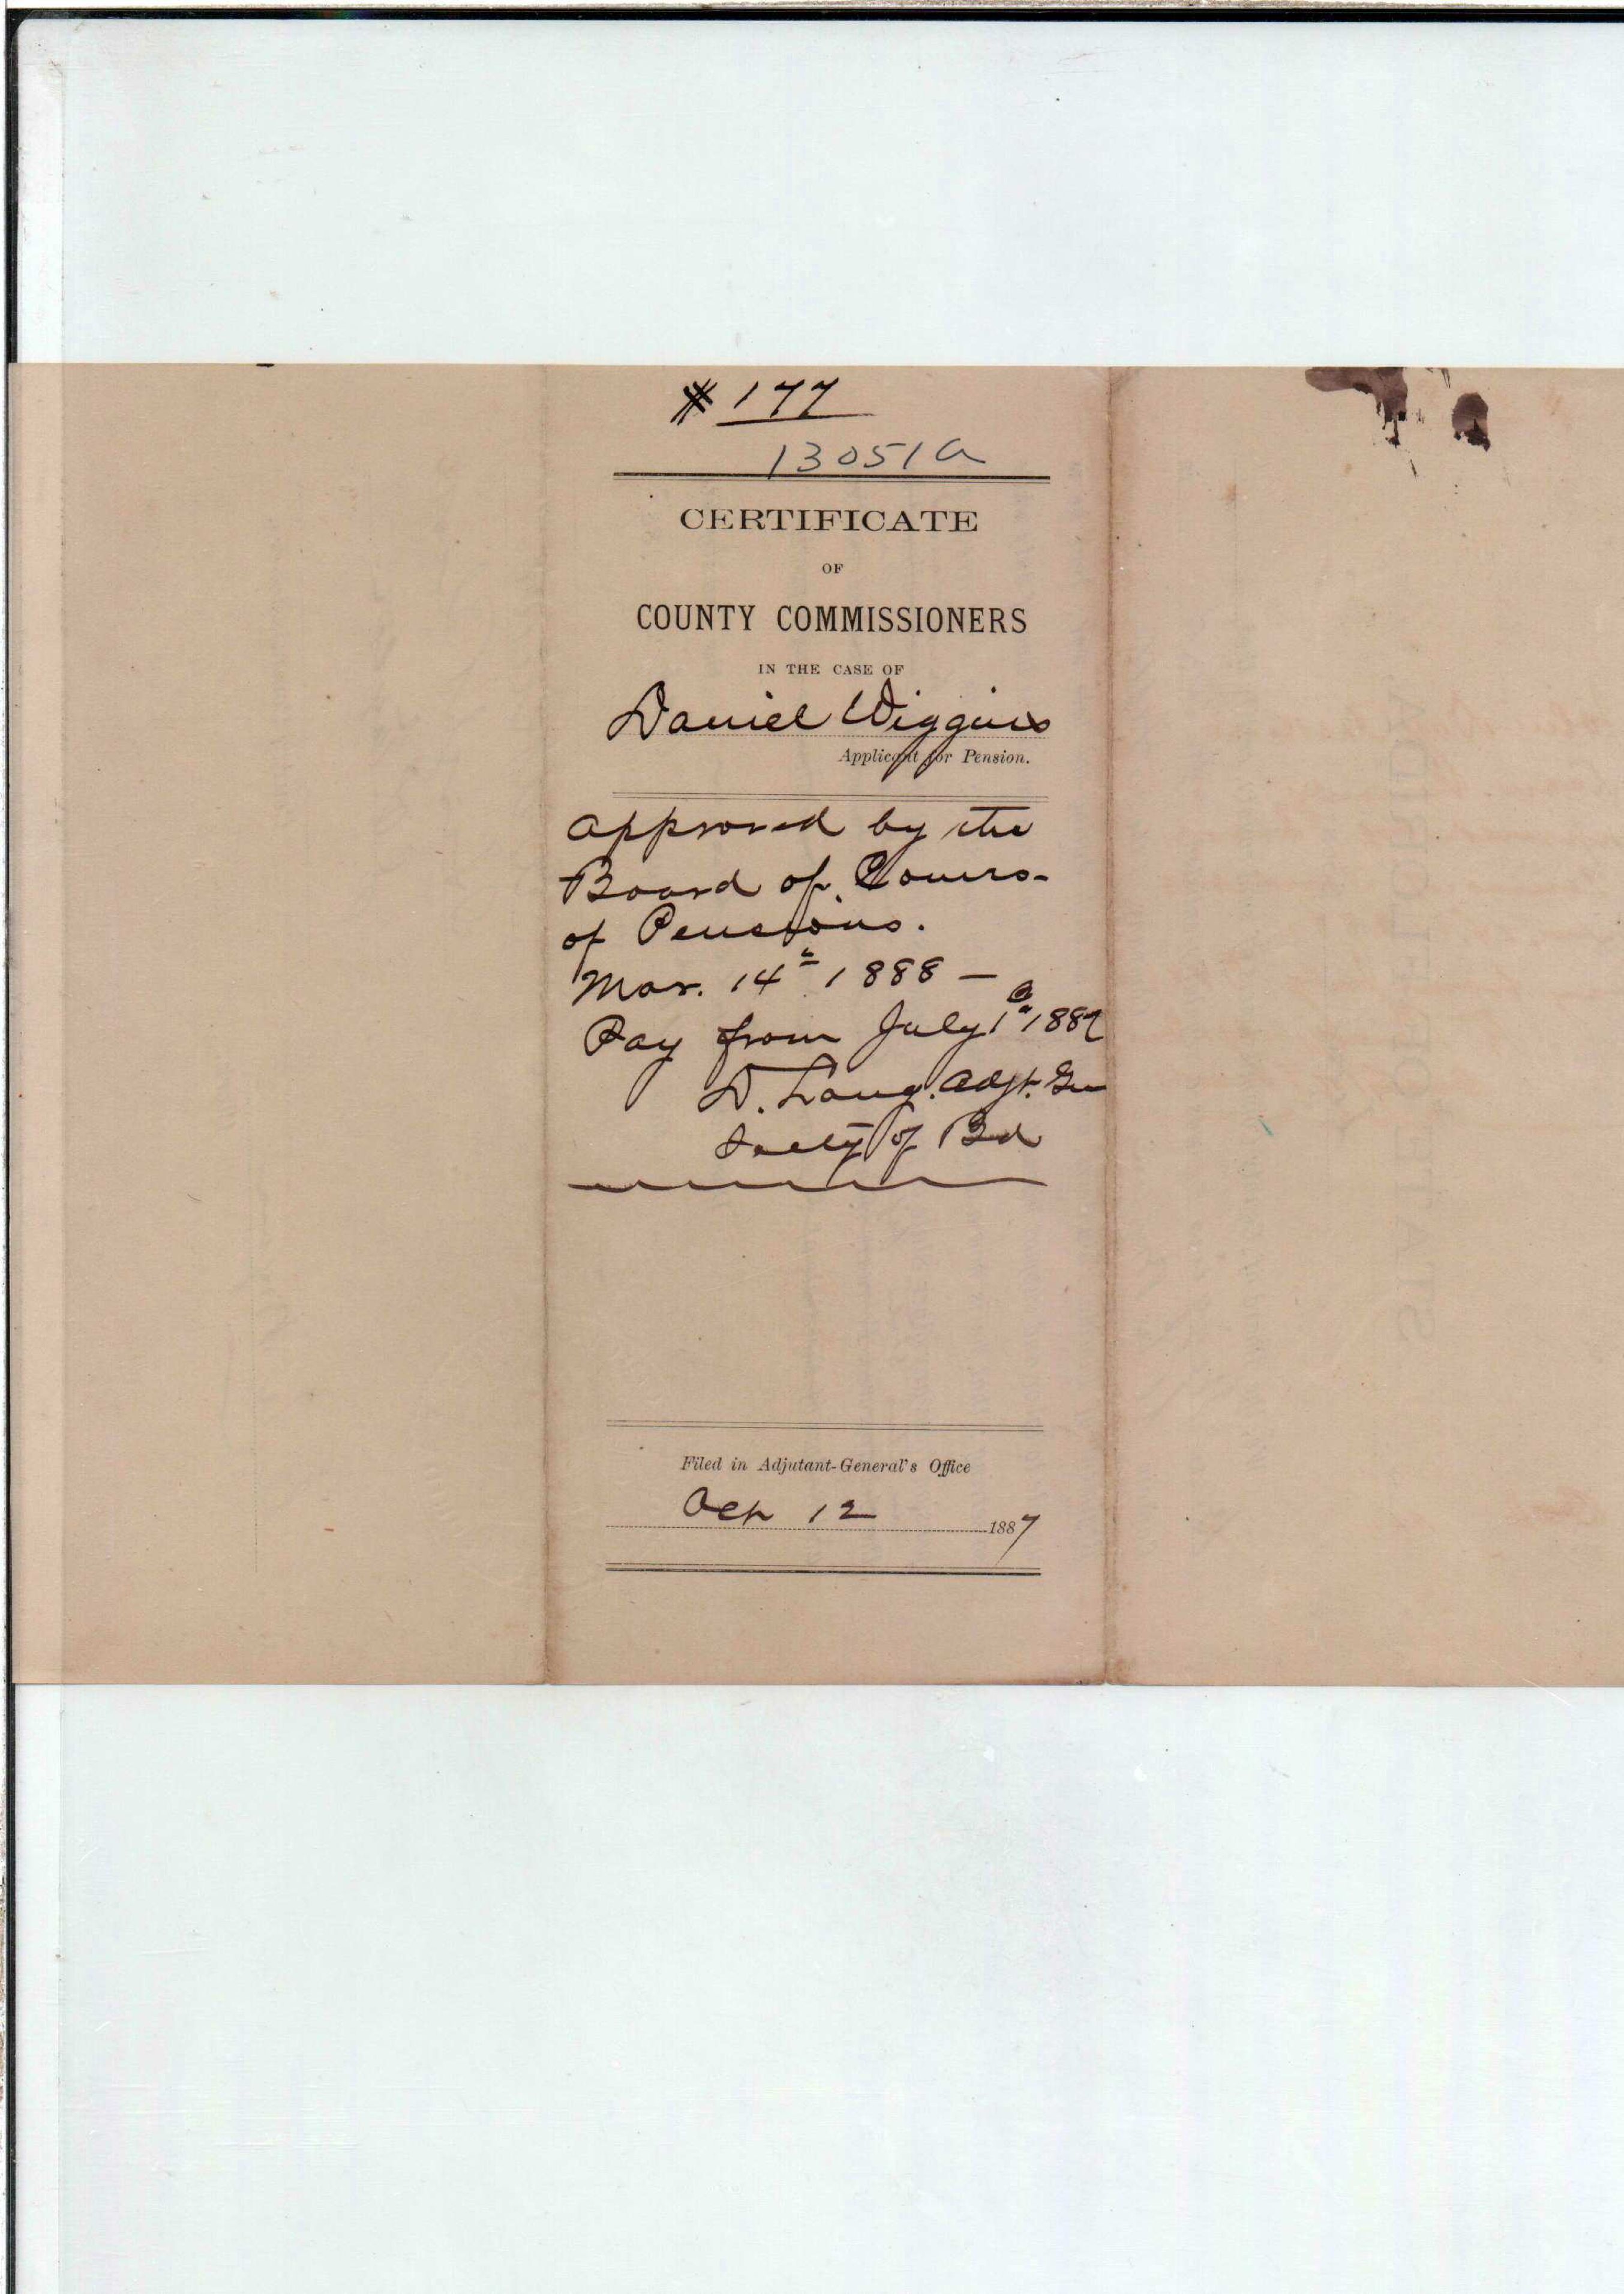 # 177
13051a
CERTIFICATE
OF
COUNTY COMMISSIONERS
IN THE CASE OF
Daniel Wiggins
Applicant for Pension.
approved by the
Board of Comrs.
of Pensions.
Mar. 14th 1888 —
Pay from July 1st 1887
D. Lang. Adjt. Gen
Secty of Bd
Filed in Adjutant-General's Office
Oct 12 1887